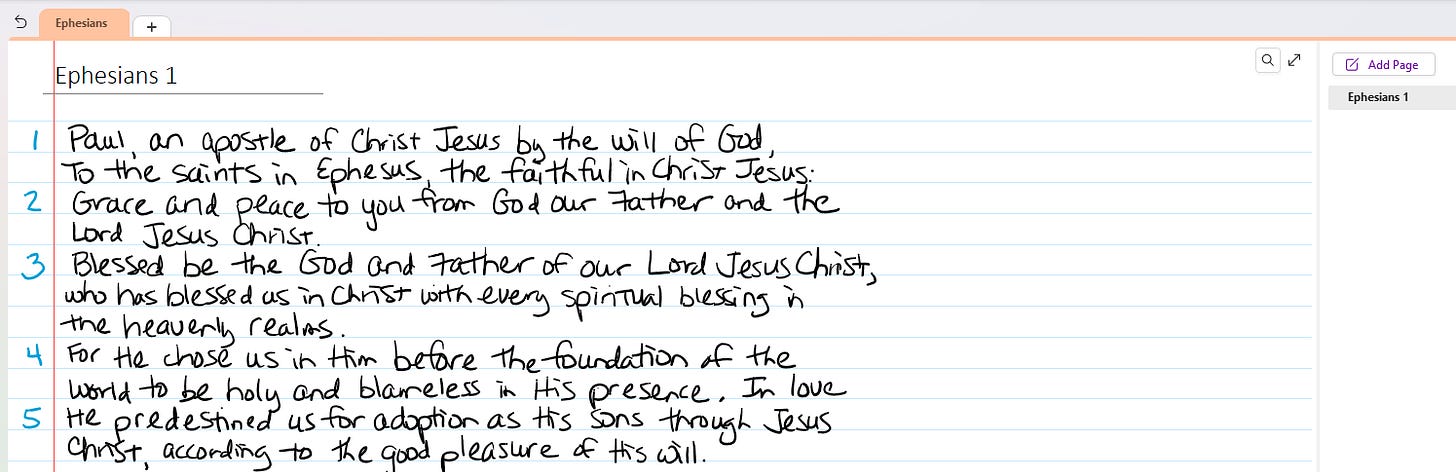 Ephesians
+
Ephesians 1
Add Page
Ephesians 1
1 Paul, an apostle of Christ Jesus by the will of God,
To the saints in Ephesus, the faithful in Christ Jesus:
2 Grace and peace to you from God our Father and the
Lord Jesus Christ.
3 Blessed be the God and Father of our Lord Jesus Christ,
who has blessed us in Christ with every spiritual blessing in
the heavenly realms.
4 For He chose us in Him before the foundation of the
world to be holy and blameless in His presence. In love
5 He predestined us for adoption as His sons through Jesus
Christ, according to the good pleasure of His will.